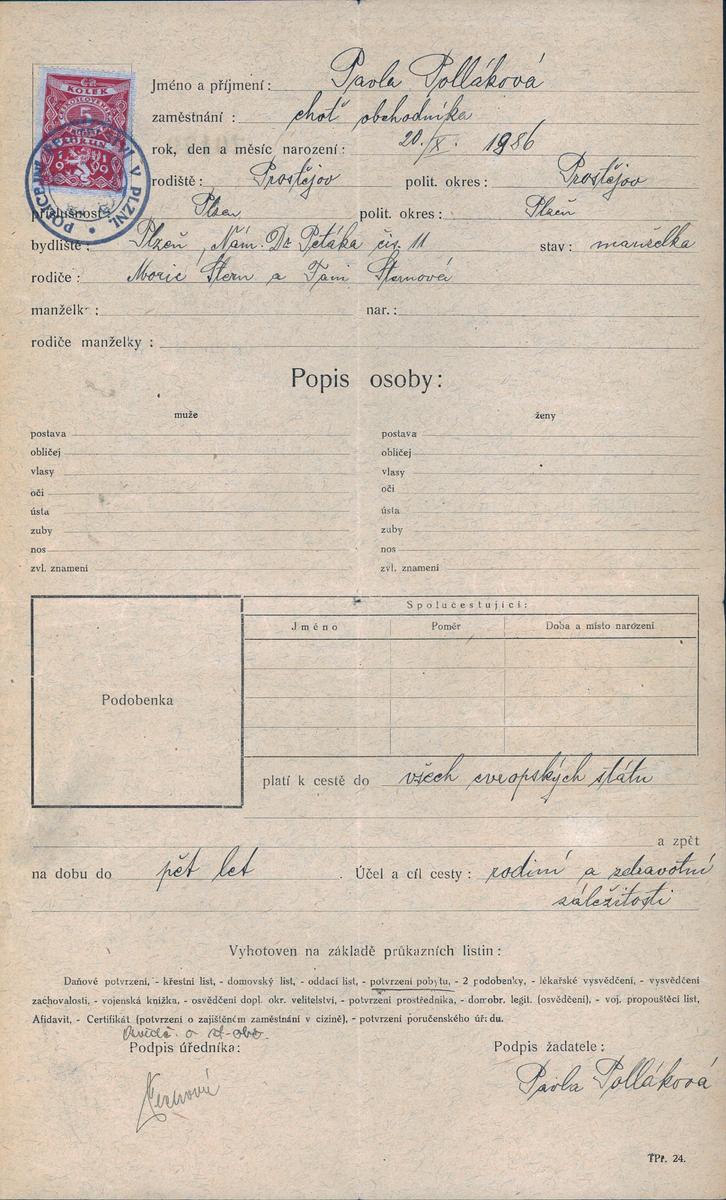 KOLEK
5
KORUN
1919
POLICEJNÍ ŘEDITELSTVÍ V PLZNI
Jméno a příjmení: Pavla Polláková
zaměstnání: choť obchodníka
rok, den a měsíc narození: 20./X. 1986
rodiště: Prostějov polit. okres: Prostějov
příslušnost: Plzeň polit. okres: Plzeň
bydliště: Plzeň, Nám. Dr Petáka čís. 11 stav: manželka
rodiče: Moric Stern a Fani Sternová
manželka: nar.:
rodiče manželky:
Popis osoby:
muže ženy
postava postava
obličej obličej
vlasy vlasy
oči oči
ústa ústa
zuby zuby
nos nos
zvl. znamení zvl. znamení
Spolucestující:
Jméno Poměr Doba a místo narození
Podobenka
platí k cestě do všech evropských státu
a zpět
na dobu do pět let. Účel a cíl cesty: rodinní a zdravotní
záležitosti
Vyhotoven na základě průkazních listin:
Daňové potvrzení, - křestní list, - domovský list, - oddací list, - potvrzení pobytu, - 2 podobenky, - lékařské vysvědčení, - vysvědčení
zachovalosti, - vojenská knížka, - osvědčení dopl. okr. velitelství, - potvrzení prostředníka, - dom. obr. legit. (osvědčení), - voj. propouštěcí list,
Afidavit, - Certifikát (potvrzení o zajištěném zaměstnání v cizině), - potvrzení poručenského úřadu.
Podpis úředníka: Podpis žadatele:
Pavla Polláková
TPř. 24.